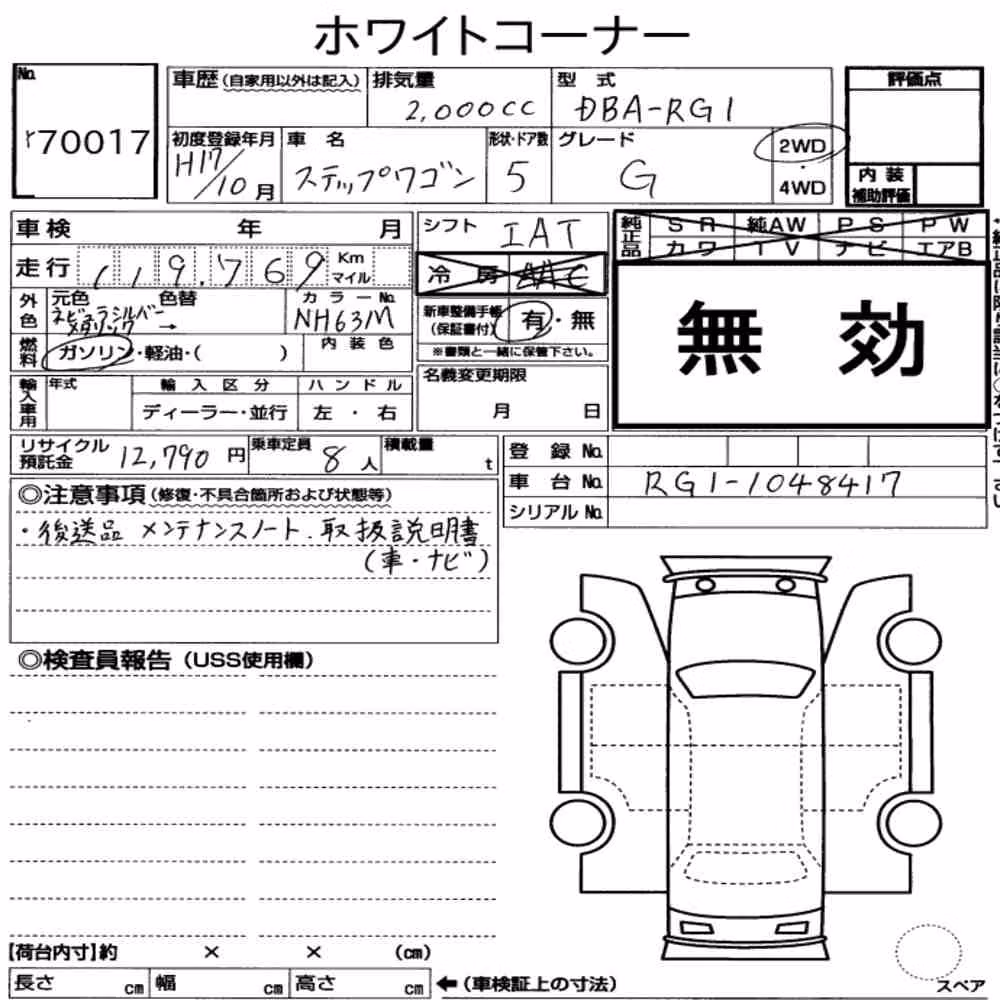 ホワイトコーナー
No.
70017
車歴(自家用以外は記入) 排気量 型式
2,000cc DBA-RG1
初度登録年月 車名 形状・ドア数 グレード
H17/10月 ステップワゴン 5 G 2WD・4WD
評価点
内装補助評価
車検 年 月
シフト IAT
純正品 SR 純AW PS PW
カワ TV ナビ エアB
走行 119.769 Km マイル
冷房 AAC
無効
外色 元色 色替 カラーNo.
ネビュラシルバーメタリック → NH63M
新車整備手帳(保証書付) 有・無
※書類と一緒に保管下さい。
燃料 ガソリン・軽油・( ) 内装色
名義変更期限
月 日
輸入車用 年式 輸入区分 ハンドル
ディーラー・並行 左・右
リサイクル預託金 12,790円 乗車定員 8人 積載量 t
登録No.
車台No. RG1-1048417
シリアルNo.
◎注意事項(修復・不具合箇所および状態等)
・後送品 メンテナンスノート.取扱説明書
(車・ナビ)
◎検査員報告(USS使用欄)
【荷台内寸】約 × × (cm)
長さ cm 幅 cm 高さ cm ←(車検証上の寸法)
スペア